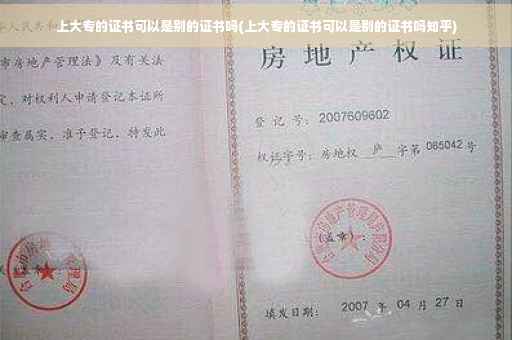 上大专的证书可以是别的证书吗(上大专的证书可以是别的证书吗知乎)
人民共和
市房地产管理法》及有关法
定，对权利人申请登记本证所
审查属实，准予登记，特发此
房地产权证
登 记 号：2007609602
权证字号：房地权 庐 字第 085042 号
(盖章)：
填发日期： 2007 年 04 月 27 日